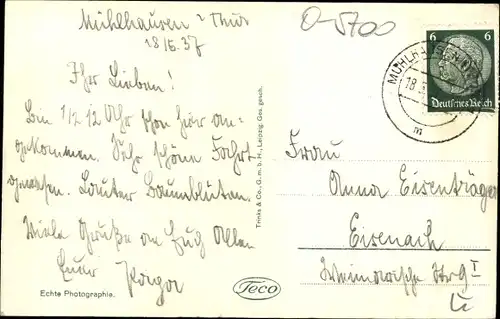 Mühlhausen i Thür
18/5.37
Ihr Lieben!
Bin 1/2 12 Uhr schon hier an-
gekommen. Sehr schöne Fahrt
gewesen. Lauter Baumblüten.
Viele Grüße an Euch Allen
Euer
Echte Photographie.
Trinks & Co., G. m. b. H., Leipzig. Ges. gesch.
Teco
O-5700
MÜHLHAUSEN
18
m
6 6
Deutsches Reich
Frau
Anna Eisenträger
Eisenach
Weimarische Str 9 I